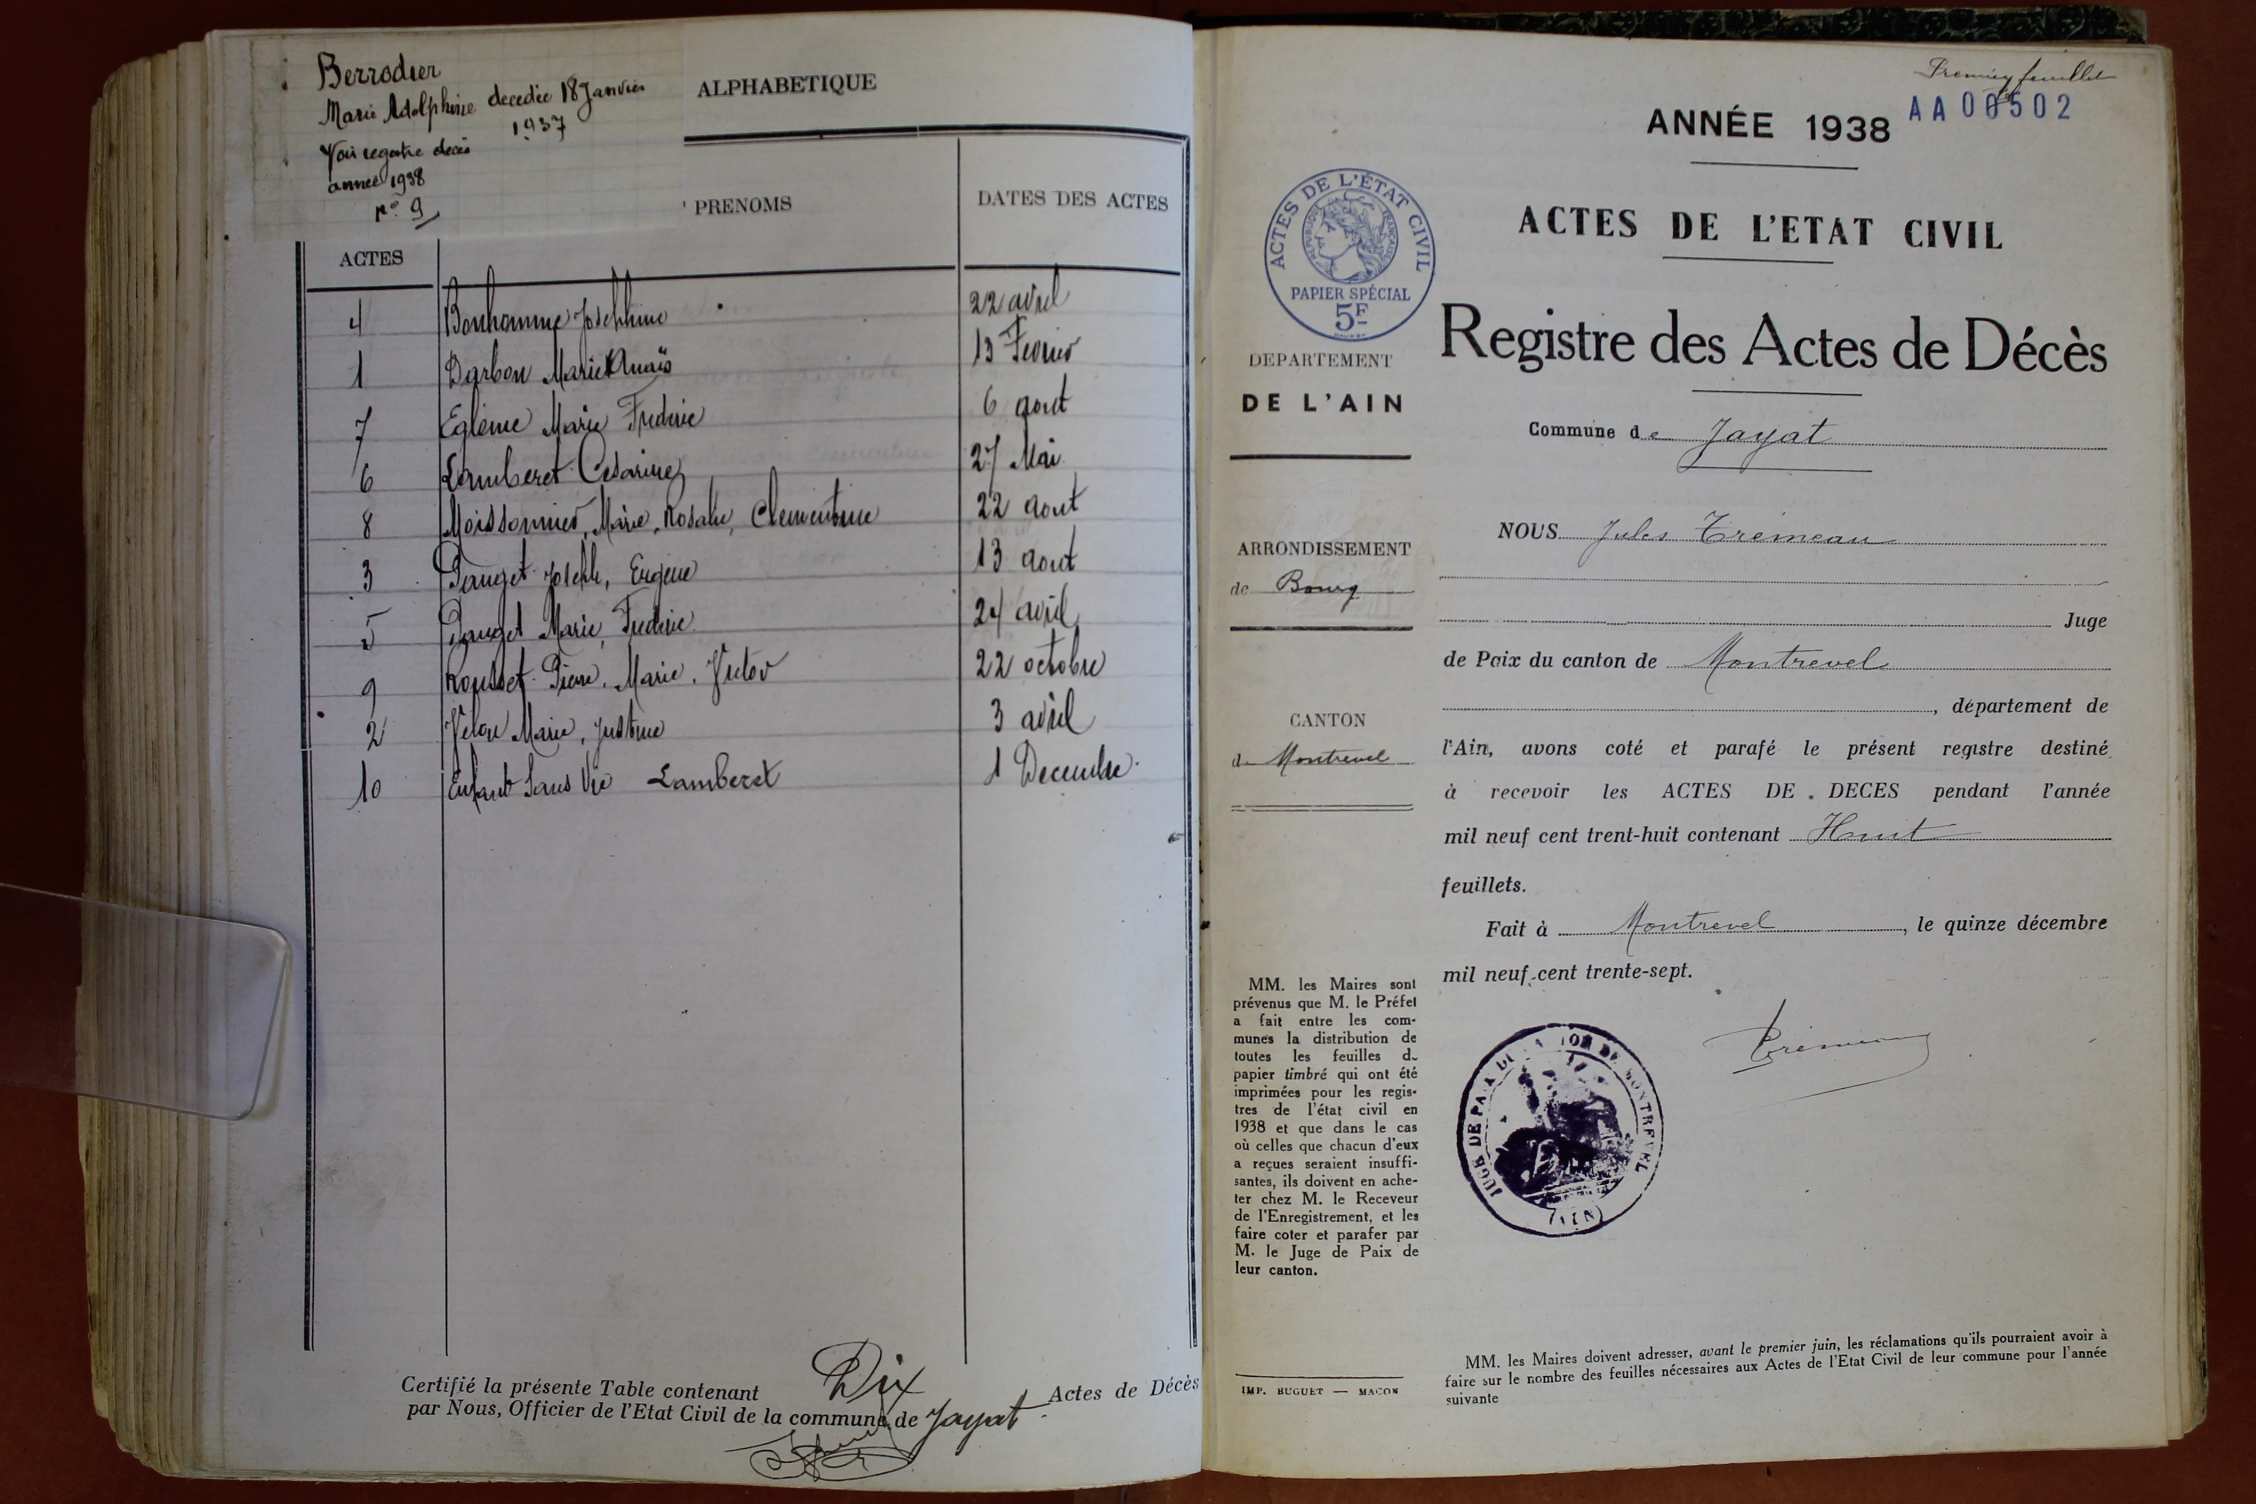 Berrodier
Marie Adolphine decedée 18 Janvier
1937
Voir registre décès
année 1938
N° 9
ALPHABETIQUE
ACTES
PRENOMS
DATES DES ACTES
4 Bonhomme Joséphine 22 avril
1 Darbon Marie Anaïs 13 Février
7 Egléme Marie Frederic 6 aout
6 Lamberet Césarine 27 Mai
8 Moissonnier, Marie, Rosalie, Clementine 22 aout
3 Pauget Joseph, Eugène 13 aout
5 Pauget Marie, Frederic 24 avril
9 Rousset Pierre, Marie, Victor 22 octobre
2 Marie, Justine 3 avril
10 Enfant Sans Vie Lamberet 1 Decembre
Certifié la présente Table contenant Dix Actes de Décès
par Nous, Officier de l'Etat Civil de la commune de Jayat
Premier feuillet
ANNÉE 1938
AA 00502
ACTES DE L'ETAT CIVIL
ACTES DE L'ÉTAT CIVIL
RÉPUBLIQUE FRANÇAISE
PAPIER SPÉCIAL
5F
Registre des Actes de Décès
DEPARTEMENT
DE L'AIN
Commune de Jayat
ARRONDISSEMENT
de Bourg
CANTON
de Montrevel
NOUS Jules Trémeau
Juge
de Paix du canton de Montrevel
, département de
l'Ain, avons coté et parafé le présent registre destiné
à recevoir les ACTES DE DECES pendant l'année
mil neuf cent trent-huit contenant Huit
feuillets.
Fait à Montrevel, le quinze décembre
mil neuf cent trente-sept.
Trémeau
JUGE DE PAIX DU CANTON DE MONTREVEL
(AIN)
MM. les Maires sont
prévenus que M. le Préfet
a fait entre les com-
munes la distribution de
toutes les feuilles de
papier timbré qui ont été
imprimées pour les regis-
tres de l'état civil en
1938 et que dans le cas
où celles que chacun d'eux
a reçues seraient insuffi-
santes, ils doivent en ache-
ter chez M. le Receveur
de l'Enregistrement, et les
faire coter et parafer par
M. le Juge de Paix de
leur canton.
IMP. BUGUET — MACON
MM. les Maires doivent adresser, avant le premier juin, les réclamations qu'ils pourraient avoir à
faire sur le nombre des feuilles nécessaires aux Actes de l'Etat Civil de leur commune pour l'année
suivante